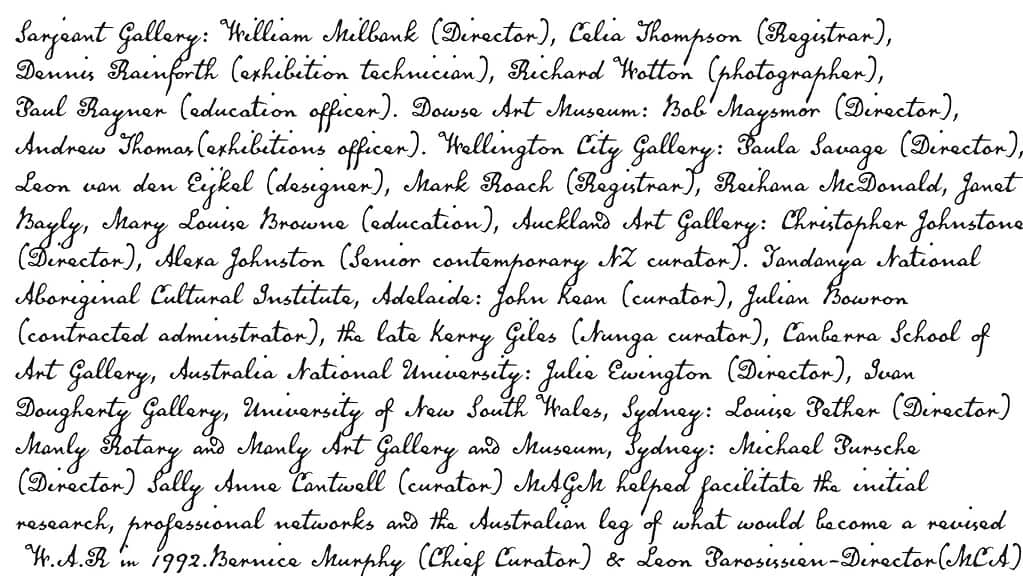 Sarjeant Gallery: William Milbank (Director), Celia Thompson (Registrar),
Dennis Rainforth (exhibition technician), Richard Wotton (photographer),
Paul Rayner (education officer). Dowse Art Museum: Bob Maysmor (Director),
Andrew Thomas(exhibitions officer). Wellington City Gallery: Paula Savage (Director),
Leon van den Eijkel (designer), Mark Roach (Registrar), Reihana McDonald, Janet
Bayly, Mary Louise Browne (education), Auckland Art Gallery: Christopher Johnstone
(Director), Alexa Johnston (Senior contemporary NZ curator). Tandanya National
Aboriginal Cultural Institute, Adelaide: John Kean (curator), Julian Bowron
(contracted adminstrator), the late Kerry Giles (Nunga curator), Canberra School of
Art Gallery, Australia National University: Julie Ewington (Director), Ivan
Dougherty Gallery, University of New South Wales, Sydney: Louise Pether (Director)
Manly Rotary and Manly Art Gallery and Museum, Sydney: Michael Pursche
(Director) Sally Anne Cantwell (curator) MAGM helped facilitate the initial
research, professional networks and the Australian leg of what would become a revised
W.A.R in 1992.Bernice Murphy (Chief Curator) & Leon Parosissien-Director(MCA)